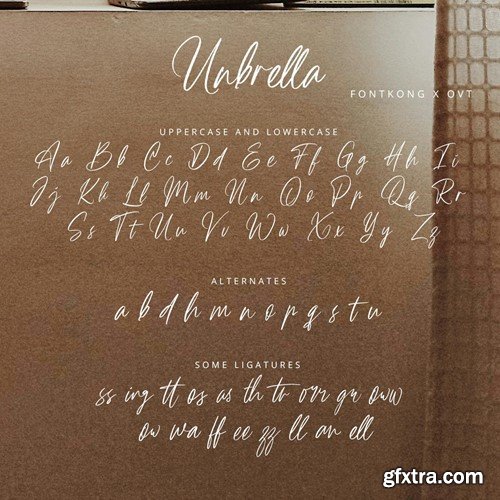 Unbrella
FONTKONG X OVT
UPPERCASE AND LOWERCASE
Aa Bb Cc Dd Ee Ff Gg Hh Ii
Jj Kk Ll Mm Nn Oo Pp Qq Rr
Ss Tt Uu Vv Ww Xx Yy Zz
ALTERNATES
a b d h m n o p q s t u
SOME LIGATURES
ss ing tt os as th tr orr gr oww
ow wa ff ee zz ll an ell
gfxtra.com